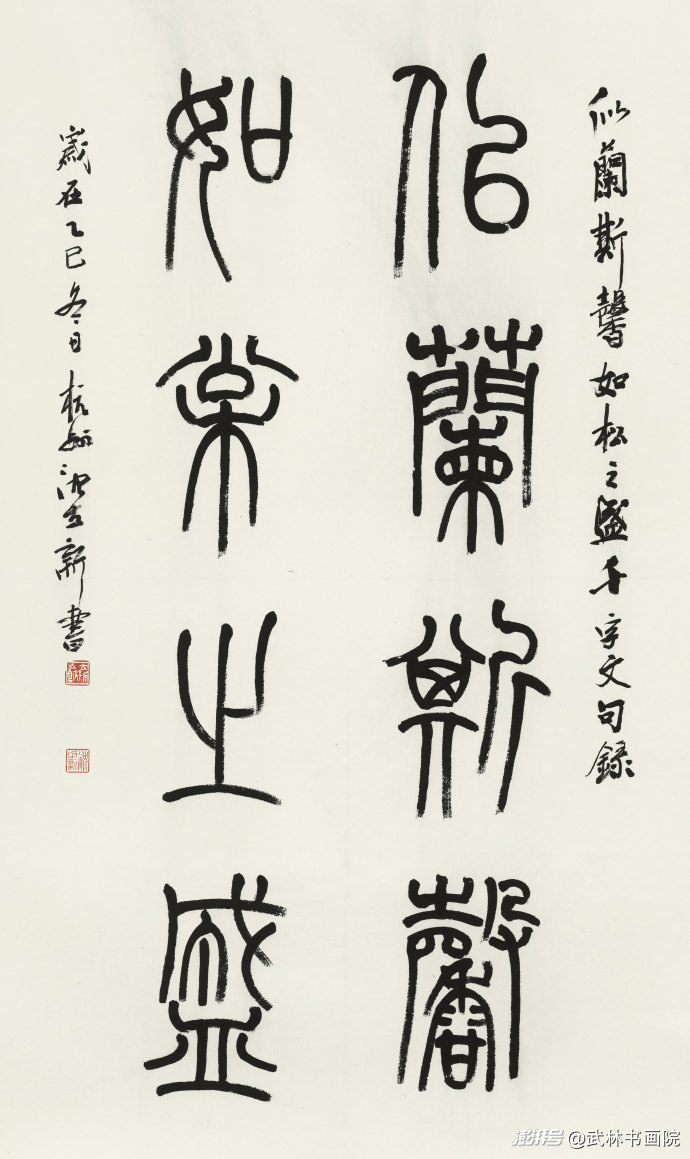 似蘭斯馨如松之盛千字文句錄
佀蘭斯馨
如枩之盛
歲在乙巳冬日杭州沈立新書
澎湃号@武林书画院